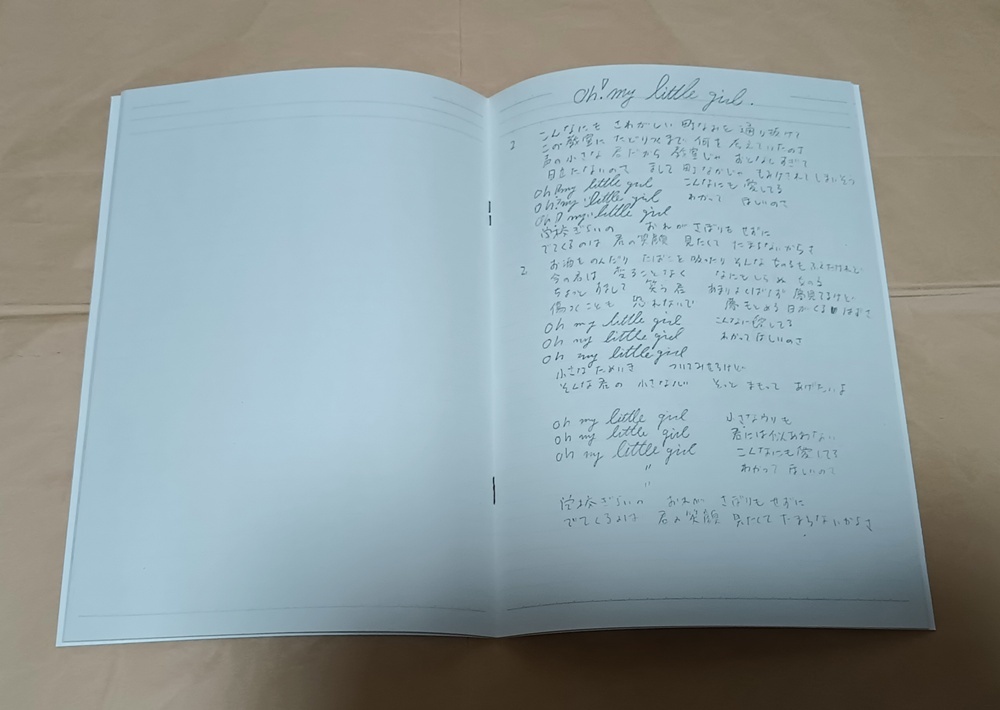 Oh! my little girl.
1 こんなにも さわがしい 町なみを 通り抜けて
この教室に たどりつくまで 何を 考えていたのさ
声の小さな 君だから 教室じゃ おとなしすぎて
目立たないので まして 町なかじゃ
oh! my little girl こんなにも 愛してる
oh! my little girl わかって ほしいので
oh! my little girl
学校ぎらいの おれが さぼりも せずに
でてくるのは 君の笑顔 見たくて たまらないからさ
2 お酒をのんだり たばこを 吸ったり そんな
今の君は 変ることなく なにもしらぬ
ちょっと 笑う君
傷つくことも 恐れないで 日がくる はずさ
oh my little girl こんなに愛してる
oh my little girl わかってほしいのさ
oh my little girl
小さなためいき ついてみせるけど
そんな君の 小さな心 そっと まもって あげたいよ
oh my little girl 小さな
oh my little girl 君には似あわない
oh my little girl こんなにも愛してる
〃 わかって ほしいので
〃
学校ぎらいの おれが さぼりも せずに
でてくるのは 君の笑顔 見たくて たまらないからさ